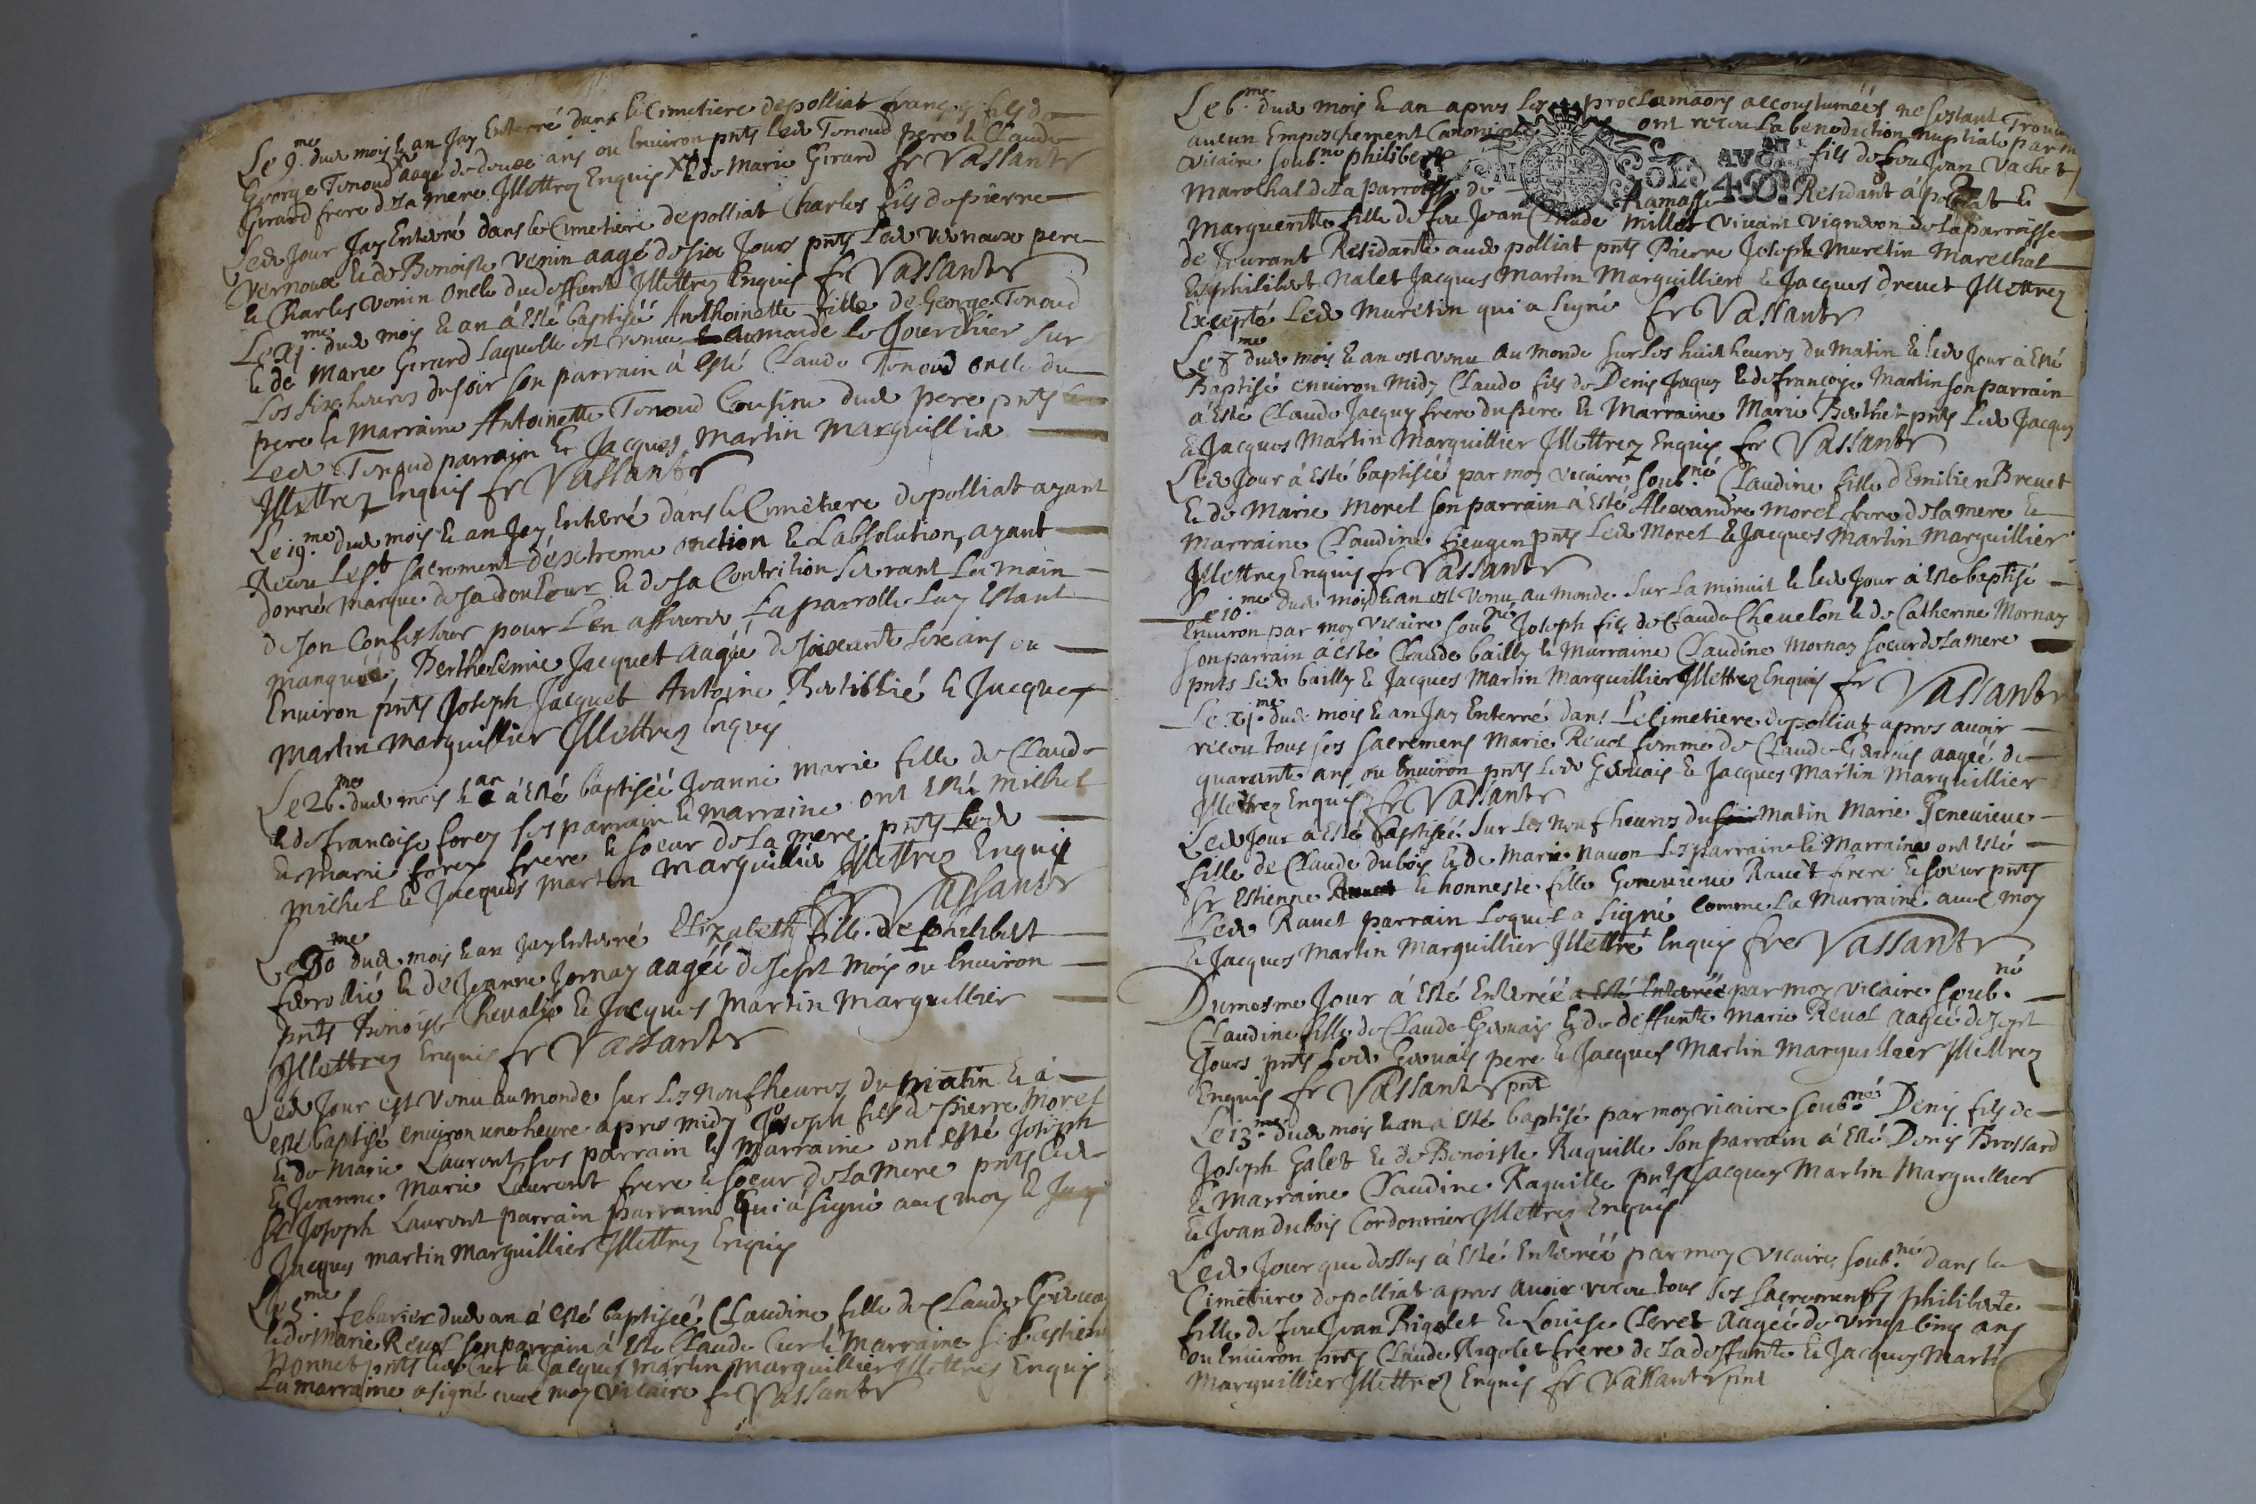 Le 9.me dud mois & an Jay Enterré dans le Cimetiere de polliat françois fils de
George Tenoud aagé de douze ans ou Environ pnts led Tenoud pere & Claude
Girard frere de la mere Illettrez Enquis X & de Marie Girard fr Vassants
Led Jour Jay Enterré dans le Cimetiere de polliat Charles fils de pierre
Vernoux & de Benoiste Venin aagé de six Jours pnts Led Vernoux pere
& Charles Venin oncle dud deffunt Illettrez Enquis fr Vassants
Le XI.me dud mois & an à Esté baptisée Anthoinette fille de George Tenoud
& de Marie Girard laquelle est venue au monde le Jour d'hier sur
Les six heures du soir son parrain à Esté Claude Tenoud oncle du
pere & Marraine Antoinette Tenoud Cousine dud pere pnts
Led Tenoud parrain & Jacques Martin Marguillier
Illettrez Enquis fr Vassants
Le 19.me dud mois & an Jay Enterré dans le Cimetiere de polliat ayant
Receu Le st sacrement d'extreme onction & L'absolution, ayant
donné Marque de sa douleur & de sa Contrition serrant La main
de son Confesseur pour L'en assurer La parrolle Luy Estant
manquéé, Berthelemie Jacquet aagée de soixante six ans ou
Environ pnts Joseph Jacquet Antoine & Jacques
Martin Marguillier Illettrez Enquis
Le 26.me dud mois & an à Esté baptiséé Jeanne Marie fille de Claude
& de françoise forez ses parrain & marraine ont Esté Michel
& Marie forez frere & soeur de la mere pnts Led
Michel & Jacques Martin Marguillier Illettrez Enquis
fr Vassants
Le 30.me dud mois & an Jay Enterré Elizabeth fille de philibert
& de Jeanne Jornay aagéé de sept mois ou Environ
pnts Benoist Chevalier & Jacques Martin Marguillier
Illettrez Enquis fr Vassants
Led Jour est Venu au monde sur les neuf heures du matin & à
esté baptisé environ une heure apres midy Joseph fils de Pierre Morel
& de Marie Laurent ses parrain & Marraine ont Esté Joseph
& Jeanne Marie Laurent frere & soeur de la Mere pnts led
Sr Joseph Laurent parrain parrain qui à signé avec moy &
Jacques Martin Marguillier Illettrez Enquis
Le 5.me febvrier dud an à Esté baptiséé Claudine fille de Claude Gervais
& de Marie Revol son parrain à Esté Claude Curt & Marraine
Nonnet pnts led Curt & Jacques Martin Marguillier Illettrez Enquis
La marraine a signé avec moy Vicaire fr Vassants
Le 6.me dud mois & an apres les proclamaons accoustumées ne sestant Trouvé
aucun Empeschement Canonique ont receu La benediction nuptiale par m
Vicaire soub.né philibert fils de feu Jean Vachet
Marechal de la parroisse de Ramasse Residant à polliat &
Marguerite fille de feu Jean Claude Millet Vivant Vigneron de la parroisse
de Jeurant Residante aud polliat pnts Pierre Joseph Muretin Marechal
philibert Nalet Jacques Martin Marguillier & Jacques drevet Illettrez
Excepté Led Muretin qui a signé fr Vassants
Le 8.me dud mois & an est venu au monde sur les huit heures du Matin & led Jour à Esté
Baptisé environ midy Claude fils de Denis Jaquy & de françoise Martin son parrain
à Esté Claude Jacquy frere du pere & Marraine Marie Berthet pnts Led Jacquy
& Jacques Martin Marguillier Illettrez Enquis fr Vassants
Led Jour à Esté baptiséé par moy vicaire soub.né Claudine fille d'Emilien Brevet
& de Marie Morel son parrain à Esté Alexandre Morel frere de la mere &
Marraine Claudine pnts Led Morel & Jacques Martin Marguillier
Illettrez Enquis fr Vassants
Le 10.me dud mois & an est Venu au monde sur La minuit & led Jour à Esté baptisé
Environ par moy Vicaire soub.né Joseph fils de Claude Chevelon & de Catherine Mornay
son parrain à esté Claude bailly & Marraine Claudine Mornay soeur de la mere
pnts Led bailly & Jacques Martin Marguillier Illettrez Enquis fr Vassants
Le XI.me dud mois & an Jay Enterré dans Le Cimetiere de polliat apres avoir
receu tous ses sacremens Marie Revol femme de Claude Gervais aagéé de
quarante ans ou Environ pnts led Gervais & Jacques Martin Marguillier
Illettrez Enquis fr Vassants
Led Jour à Esté baptiséé Sur Les neuf heures du soir matin Marie Genevieve
fille de Claude Dubois & de Marie Navon Les parrain & Marraine ont Esté
Sr Estienne Ravet & honneste fille Genevieve Ravet frere & soeur pnts
Led Ravet parrain Lequel a signé comme La Marraine avec moy
& Jacques Martin Marguillier Illettré Enquis fre Vassants
Du mesme Jour à Esté Enterréé à Esté Enterréé par moy Vicaire soub.né
Claudine fille de Claude Gervais & de deffunte Marie Revol aagéé de sept
Jours pnts Led Gervais pere & Jacques Martin Marguillier Illettrez
Enquis fr Vassants pnt
Le 13.me dud mois & an à Esté baptisé par moy vicaire soub.né Denis fils de
Joseph Galet & de Benoiste Raquille son parrain à Esté Denis Brossard
& Marraine Claudine Raquille pnts Jacques Martin Marguillier
& Jean Dubois Cordonnier Illettrez Enquis
Led Jour que dessus à Esté Enterréé par moy Vicaire soub.né dans le
Cimetiere de polliat apres avoir receu tous ses sacrements philiberte
fille de feu Jean Rigolet & Louise Cleret Aagéé de vingt cinq ans
ou Environ pnts Claude Rigolet frere de La deffunte & Jacques Marti
Marguillier Illettrez Enquis fr Vassants pnt